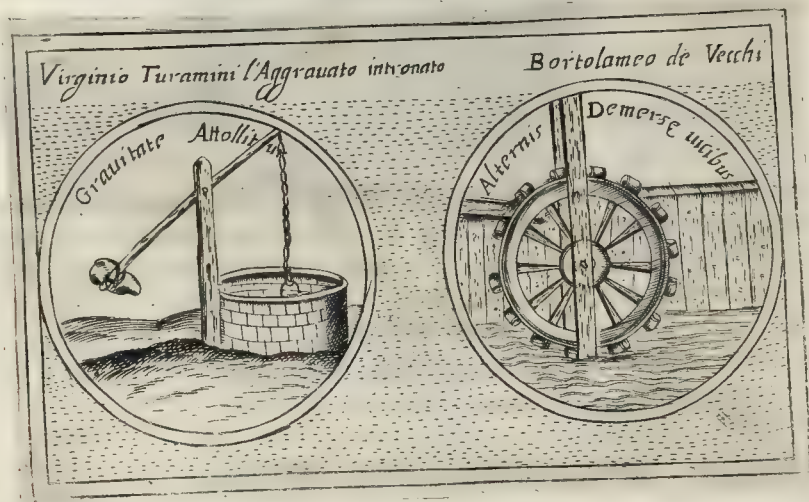 Virginio Turamini l'Aggrauato intronato
Grauitate Attollitur
Bortolameo de Vecchi
Alternis Demersę uicibus